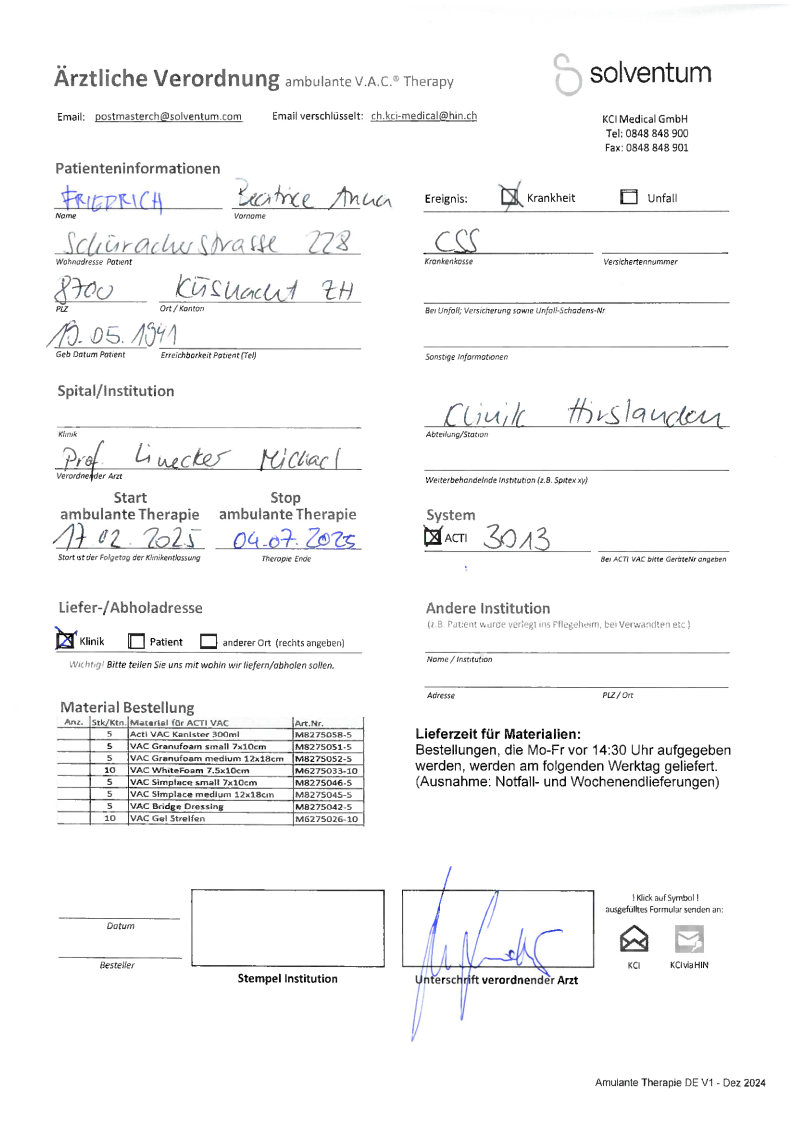 Ärztliche Verordnung ambulante V.A.C.® Therapy
solventum
Email: postmasterch@solventum.com Email verschlüsselt: ch.kci-medical@hin.ch
KCI Medical GmbH
Tel: 0848 848 900
Fax: 0848 848 901
Patienteninformationen
FRIEDRICH Beatrice Anna
Name Vorname
Schüracherstrasse 228
Wohnadresse Patient
8700 Küsnacht ZH
PLZ Ort / Kanton
19.05.1941
Geb Datum Patient Erreichbarkeit Patient (Tel)
Ereignis: Krankheit Unfall
CSS
Krankenkasse Versichertennummer
Bei Unfall; Versicherung sowie Unfall-Schadens-Nr
Sonstige Informationen
Spital/Institution
Klinik
Prof. Linecker Michael
Verordnender Arzt
Clinik Hirslanden
Abteilung/Station
Weiterbehandelnde Institution (z.B. Spitex xy)
Start Stop
ambulante Therapie ambulante Therapie
17.02.2025 04.07.2025
Start ist der Folgetag der Klinikentlassung Therapie Ende
System
ACTI 3013
Bei ACTI VAC bitte GeräteNr angeben
Liefer-/Abholadresse
Klinik Patient anderer Ort (rechts angeben)
Wichtig! Bitte teilen Sie uns mit wohin wir liefern/abholen sollen.
Andere Institution
(z.B. Patient wurde verlegt ins Pflegeheim, bei Verwandten etc.)
Name / Institution
Adresse PLZ / Ort
Material Bestellung
Anz. Stk/Ktn. Material für ACTI VAC Art.Nr.
5 Acti VAC Kanister 300ml M8275058-5
5 VAC Granufoam small 7x10cm M8275051-5
5 VAC Granufoam medium 12x18cm M8275052-5
10 VAC WhiteFoam 7.5x10cm M6275033-10
5 VAC Simplace small 7x10cm M8275046-5
5 VAC Simplace medium 12x18cm M8275045-5
5 VAC Bridge Dressing M8275042-5
10 VAC Gel Streifen M6275026-10
Lieferzeit für Materialien:
Bestellungen, die Mo-Fr vor 14:30 Uhr aufgegeben
werden, werden am folgenden Werktag geliefert.
(Ausnahme: Notfall- und Wochenendlieferungen)
Datum
Besteller
Stempel Institution
Unterschrift verordnender Arzt
! Klick auf Symbol !
ausgefülltes Formular senden an:
KCI KCI via HIN
Amulante Therapie DE V1 - Dez 2024